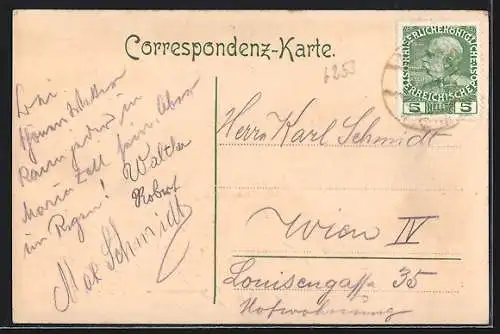 Correspondenz-Karte.
6253
KAISERLICHE KÖNIGLICHE ÖSTERREICHISCHE
5 HELLER 5
Bei
schönem Wetter
kann jeder in
Maria Zell sein. Aber
im Regen!
Walther
Robert
Max Schmidt
Herrn Karl Schmidt
Wien IV
Louisengasse 35
Hofwohnung